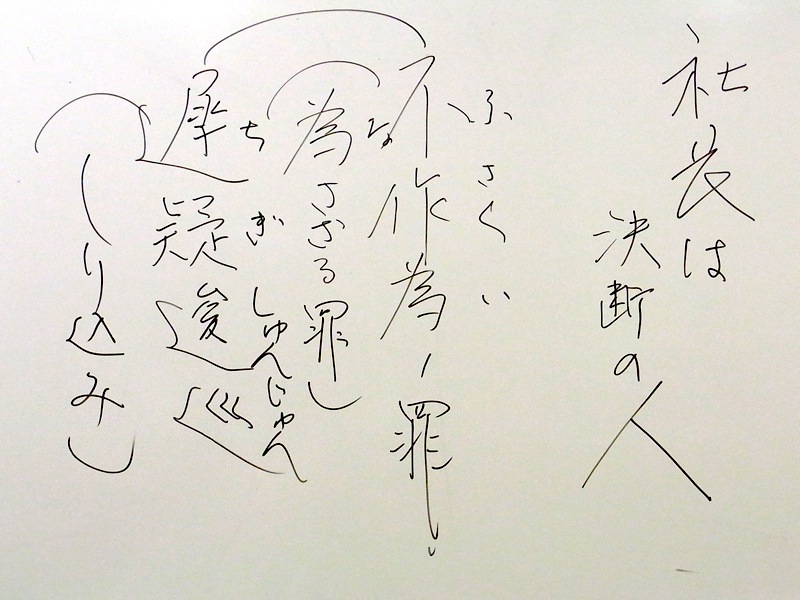 社長は
決断の人
ふさくい
不作為ノ罪
な
(為さざる罪)
ちぎしゅんじゅん
遲疑逡巡
(しり込み)